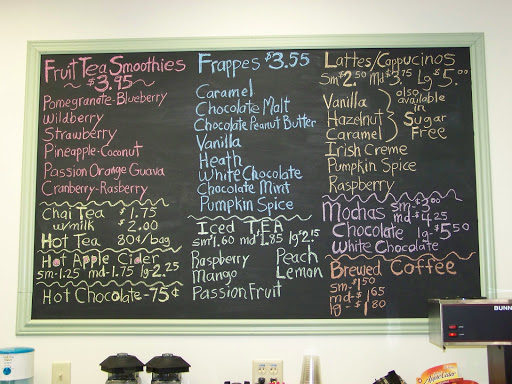 Fruit Tea Smoothies
$3.95
Pomegranate-Blueberry
Wildberry
Strawberry
Pineapple-Coconut
Passion Orange Guava
Cranberry-Rasberry
Chai Tea $1.75
w/milk $2.00
Hot Tea 80¢/bag
Hot Apple Cider
sm-1.25 md-1.75 lg-2.25
Hot Chocolate-75¢
Frappes $3.55
Caramel
Chocolate Malt
Chocolate Peanut Butter
Vanilla
Heath
White Chocolate
Chocolate Mint
Pumpkin Spice
Iced TEA
sm$1.60 md$1.85 lg$2.15
Raspberry Peach
Mango Lemon
Passion Fruit
Lattes/Cappucinos
sm$2.50 md$3.75 lg$5.00
Vanilla
Hazelnut
Caramel
also available in Sugar Free
Irish Creme
Pumpkin Spice
Raspberry
Mochas sm-$3.00
md-$4.25
Chocolate lg-$5.50
White Chocolate
Brewed Coffee
sm-$1.50
md-$1.65
lg-$1.80
BUNN
Apple Cider